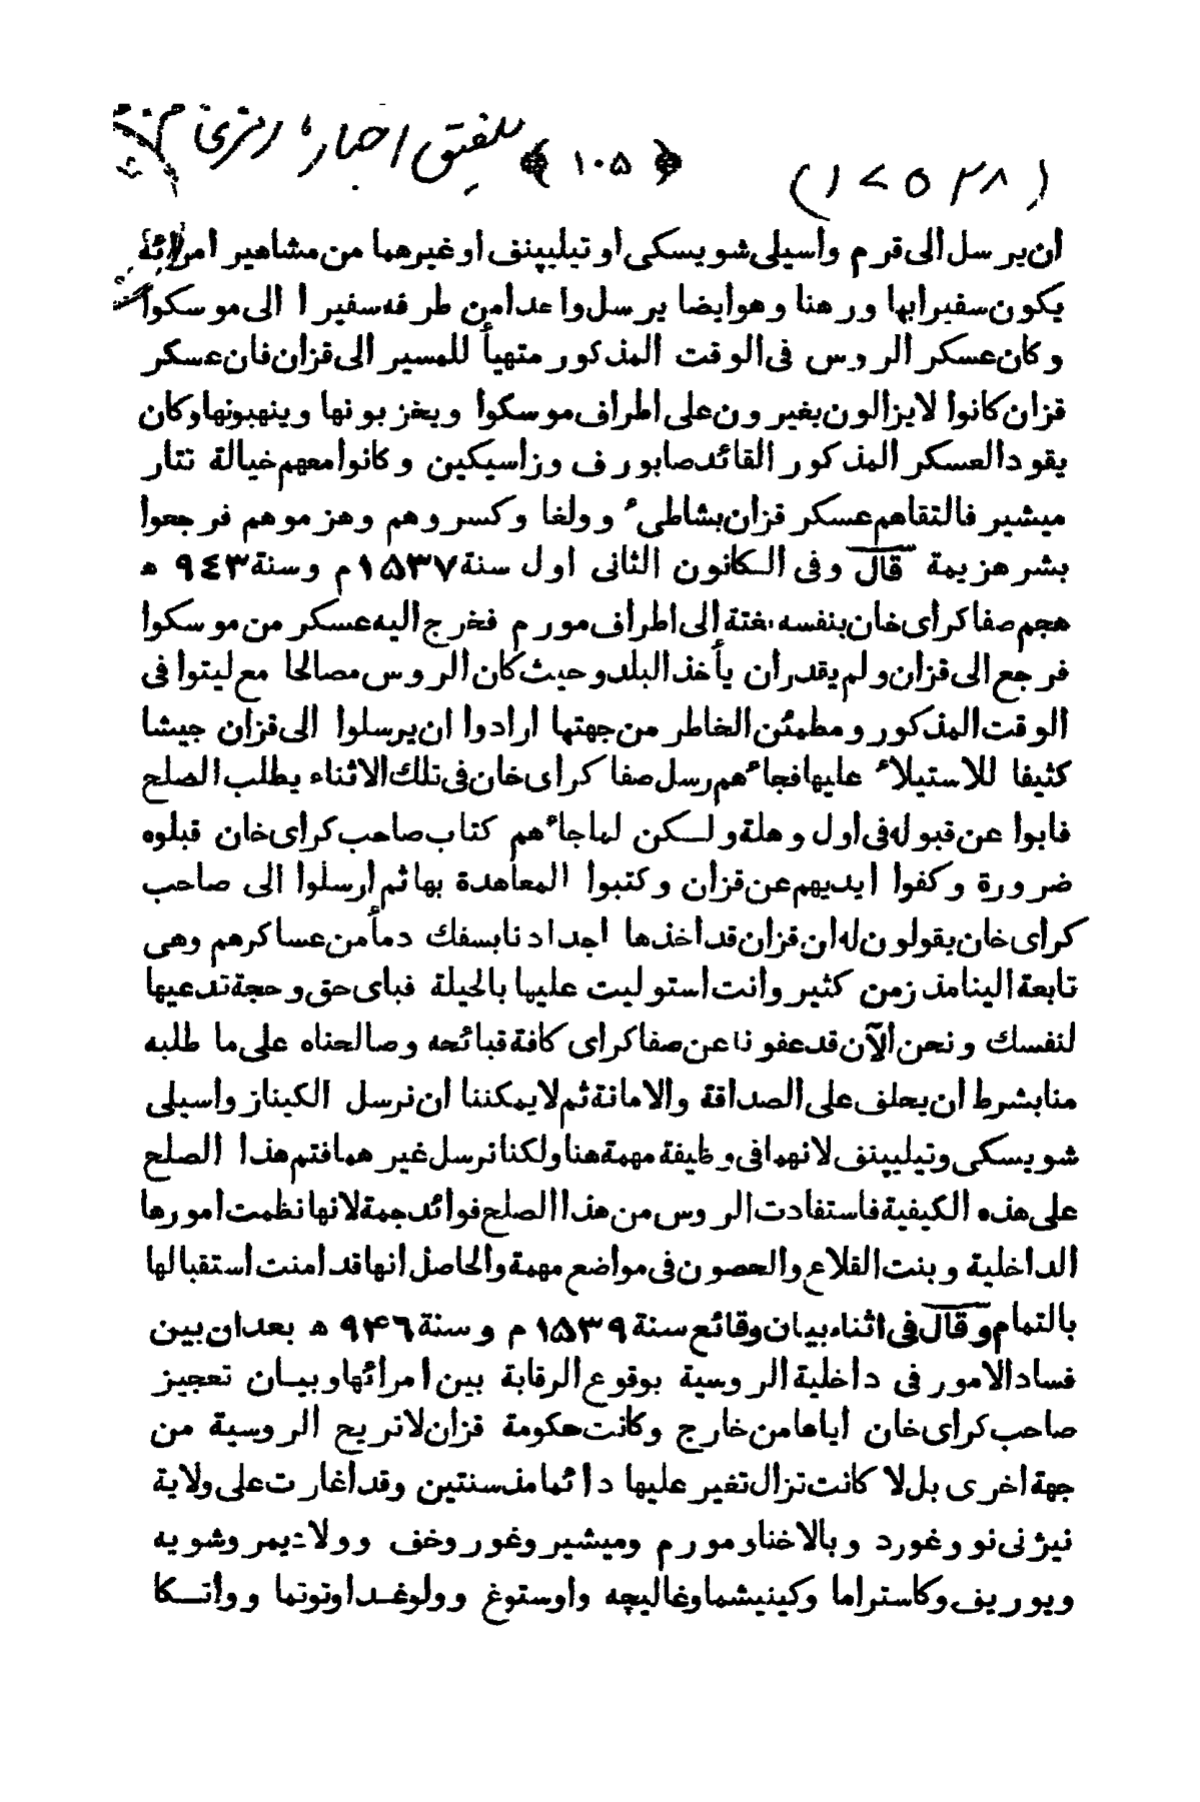 تلفيق اخبار
﴿ ١٠٥ ﴾
(١٧٥٣٨)
أن يرسل الى قرم واسيلى شويسكى أو تيليپنف أو غيرهما من مشاهير امرائه
يكون سفيرا بها ورهنا وهو أيضا يرسل واعدا من طرفه سفيرا الى موسكوا
وكان عسكر الروس فى الوقت المذكور متهيأ للمسير الى قزان فان عسكر
قزان كانوا لا يزالون يغيرون على اطراف موسكوا ويخربونها وينهبونها وكان
يقود العسكر المذكور القائد صابورف وزاسيكين وكانوا معهم خيالة تتار
ميشير فالتقاهم عسكر قزان بشاطىء وولغا وكسروهم وهزموهم فرجعوا
بشر هزيمة قال وفى الكانون الثانى اول سنة ١٥٣٧ م وسنة ٩٤٣ ه
هجم صفا كراى خان بنفسه بغتة إلى اطراف مورم فخرج اليه عسكر من موسكوا
فرجع الى قزان ولم يقدر أن يأخذ البلد وحيث كان الروس مصالحا مع ليتوا فى
الوقت المذكور ومطمئن الخاطر من جهتها ارادوا ان يرسلوا الى قزان جيشا
كثيفا للاستيلاء عليها فجاءهم رسل صفا كراى خان فى تلك الاثناء يطلب الصلح
فابوا عن قبوله فى اول وهلة ولكن لما جاءهم كتاب صاحب كراى خان قبلوه
ضرورة وكفوا ايديهم عن قزان وكتبوا المعاهدة بها ثم أرسلوا الى صاحب
كراى خان يقولون له ان قزان قد أخذها اجدادنا بسفك دمأ من عساكرهم وهى
تابعة الينا مذ زمن كثير وأنت استوليت عليها بالحيلة فباى حق وحجة تدعيها
لنفسك ونحن الآن قد عفونا عن صفا كراى كافة قبائحه وصالحناه على ما طلبه
منا بشرط أن يحلف على الصداقة والامانة ثم لا يمكننا ان نرسل الكيناز واسيلى
شويسكى وتيليپنف لانهما فى وظيفة مهمة هنا ولكنا نرسل غيرهما فتم هذا الصلح
على هذه الكيفية فاستفادت الروس من هذا الصلح فوائد جمة لانها نظمت امورها
الداخلية وبنت القلاع والحصون فى مواضع مهمة والحاصل انها قد امنت استقبالها
بالتمام وقال فى اثناء بيان وقائع سنة ١٥٣٩ م وسنة ٩۴٦ ه بعد ان بين
فساد الامور فى داخلية الروسية بوقوع الرقابة بين امرائها وبيان تعجيز
صاحب كراى خان أياها من خارج وكانت حكومة قزان لا تريح الروسية من
جهة اخرى بل لا كانت تزال تغير عليها دائما مذ سنتين وقد أغارت على ولاية
نيژنى نووغورد وبالاخنا ومورم وميشير وغوروخف وولاديمر وشويه
ويوريف وكاستراما وكينيشما وغاليچه واوستوغ وولوغدا وتوتما وواتكا